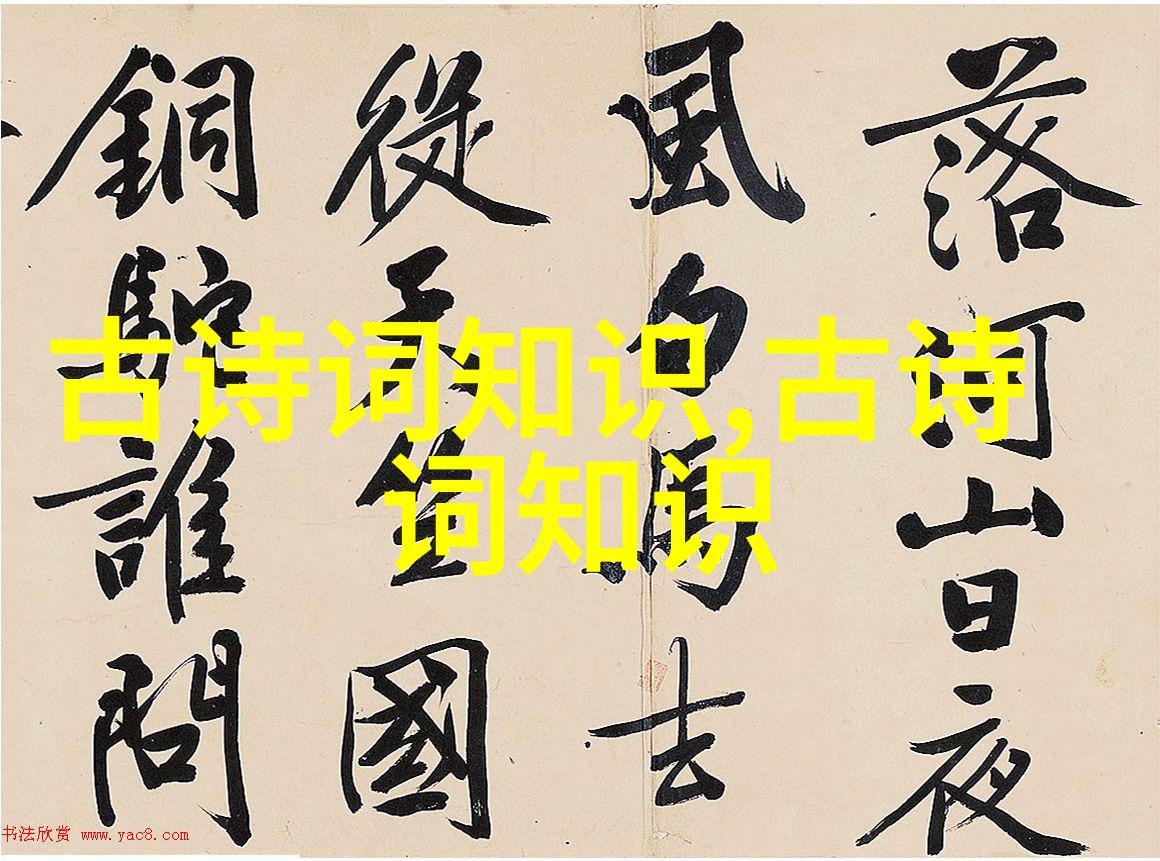 落河山日夜
風白馬去
從天竺國
銅駝誰問
古诗词知识,古诗
词知识
书法欣赏 www.yac8.com